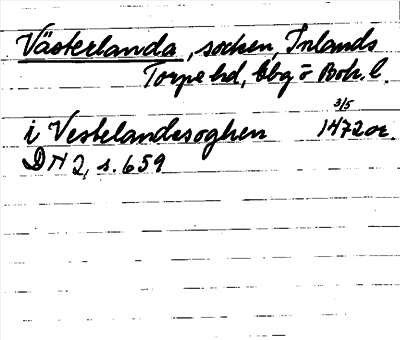 Västerlanda, socken, Inlands
Torpe hd, Gbg o Boh. l.
3/5
i Vestelandesoghen 1472 or.
DN 2, s. 659